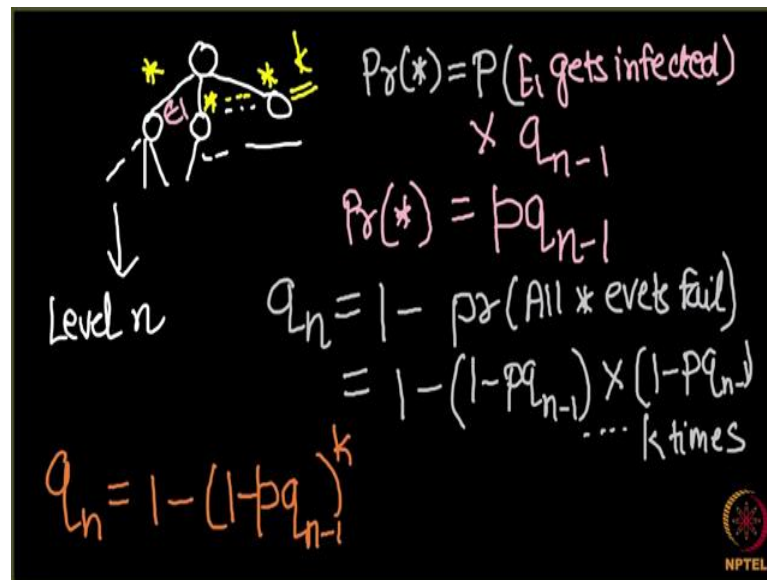 * * * k
E1
Pr(*) = P(E1 gets infected)
× q_{n-1}
Pr(*) = pq_{n-1}
Level n
q_n = 1 - pr(All * evets fail)
= 1 - (1-pq_{n-1}) × (1-pq_{n-1})
.... k times
q_n = 1 - (1-pq_{n-1})^k
NPTEL